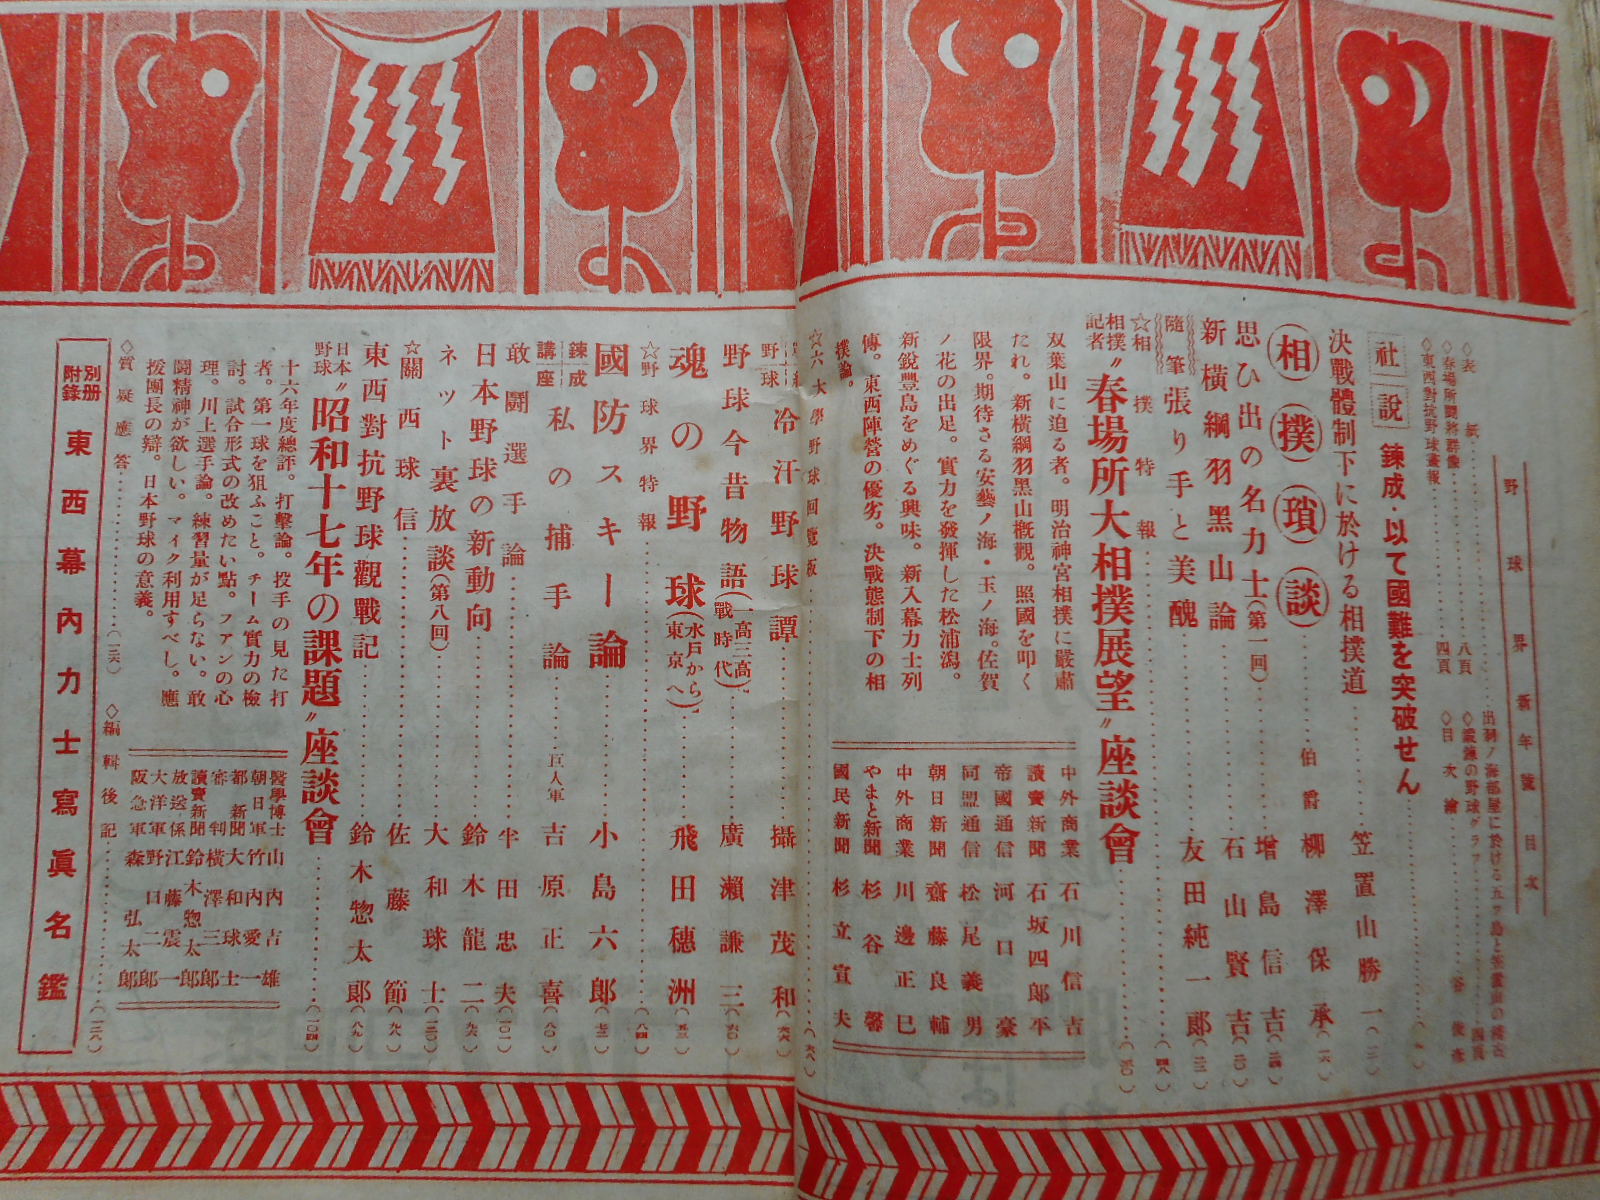 野球界新年號目次
◇表紙
◇春場所鬪將群像……八頁
◇東西對抗野球畫報……四頁
◇鍛鍊の野球グラフ……四頁
◇目次繪
社說 鍊成・以て國難を突破せん
決戰體制下に於ける相撲道……笠置山勝一
相撲瑣談……伯爵 柳澤保承
思ひ出の名力士(第一回)……增島信吉
新橫綱羽黑山論……石山賢吉
隨筆 張り手と美醜……友田純一郎
☆相撲特報……(四八)
相撲記者〝春場所大相撲展望〟座談會
双葉山に迫る者。明治神宮相撲に嚴肅
たれ。新橫綱羽黑山槪觀。照國を叩く
限界。期待さる安藝ノ海・玉ノ海。佐賀
ノ花の出足。實力を發揮した松浦潟。
新銳豐島をめぐる興味。新入幕力士列
傳。東西陣營の優劣。決戰態制下の相
撲論。
中外商業 石川信吉
讀賣新聞 石坂四郎平
帝國通信 河口豪
同盟通信 松尾義男
朝日新聞 齋藤良輔
中外商業 川邊正巳
やまと新聞 杉谷馨
國民新聞 杉立宣夫
☆六大學野球回覽板……(六八)
野球 冷汗野球譚……攝津茂和(六六)
野球今昔物語(一高三高戰時代)……廣瀨謙三(六〇)
魂の野球(水戶から東京へ)……飛田穗洲(五三)
☆野球界特報……(八四)
國防スキー論……小島六郎(七三)
鍊成講座 私の捕手論……巨人軍 吉原正喜(八〇)
敢鬪選手論……半田忠夫(一〇一)
日本野球の新動向……鈴木龍二(九六)
ネット裏放談(第八回)……大和球士(一二〇)
☆關西球信……佐藤節(九九)
東西對抗野球觀戰記……鈴木惣太郎(八九)
日本野球〝昭和十七年の課題〟座談會……(一〇四)
十六年度總評。打擊論。投手の見た打
者。第一球を狙ふこと。チーム實力の檢
討。試合形式の改めたい點。ファンの心
理。川上選手論。練習量が足らない。敢
鬪精神が欲しい。マイク利用すべし。應
援團長の辯。日本野球の意義。
醫學博士 山內吉雄
朝日軍 竹內愛一
都新聞 大和球士
審判 橫澤三郎
讀賣新聞 鈴木惣太郎
放送係 江藤震一
大洋軍 野口二郎
阪急軍 森弘太郎
◇質疑應答……(一二六)
◇編輯後記……(一二八)
別冊附錄 東西幕內力士寫眞名鑑